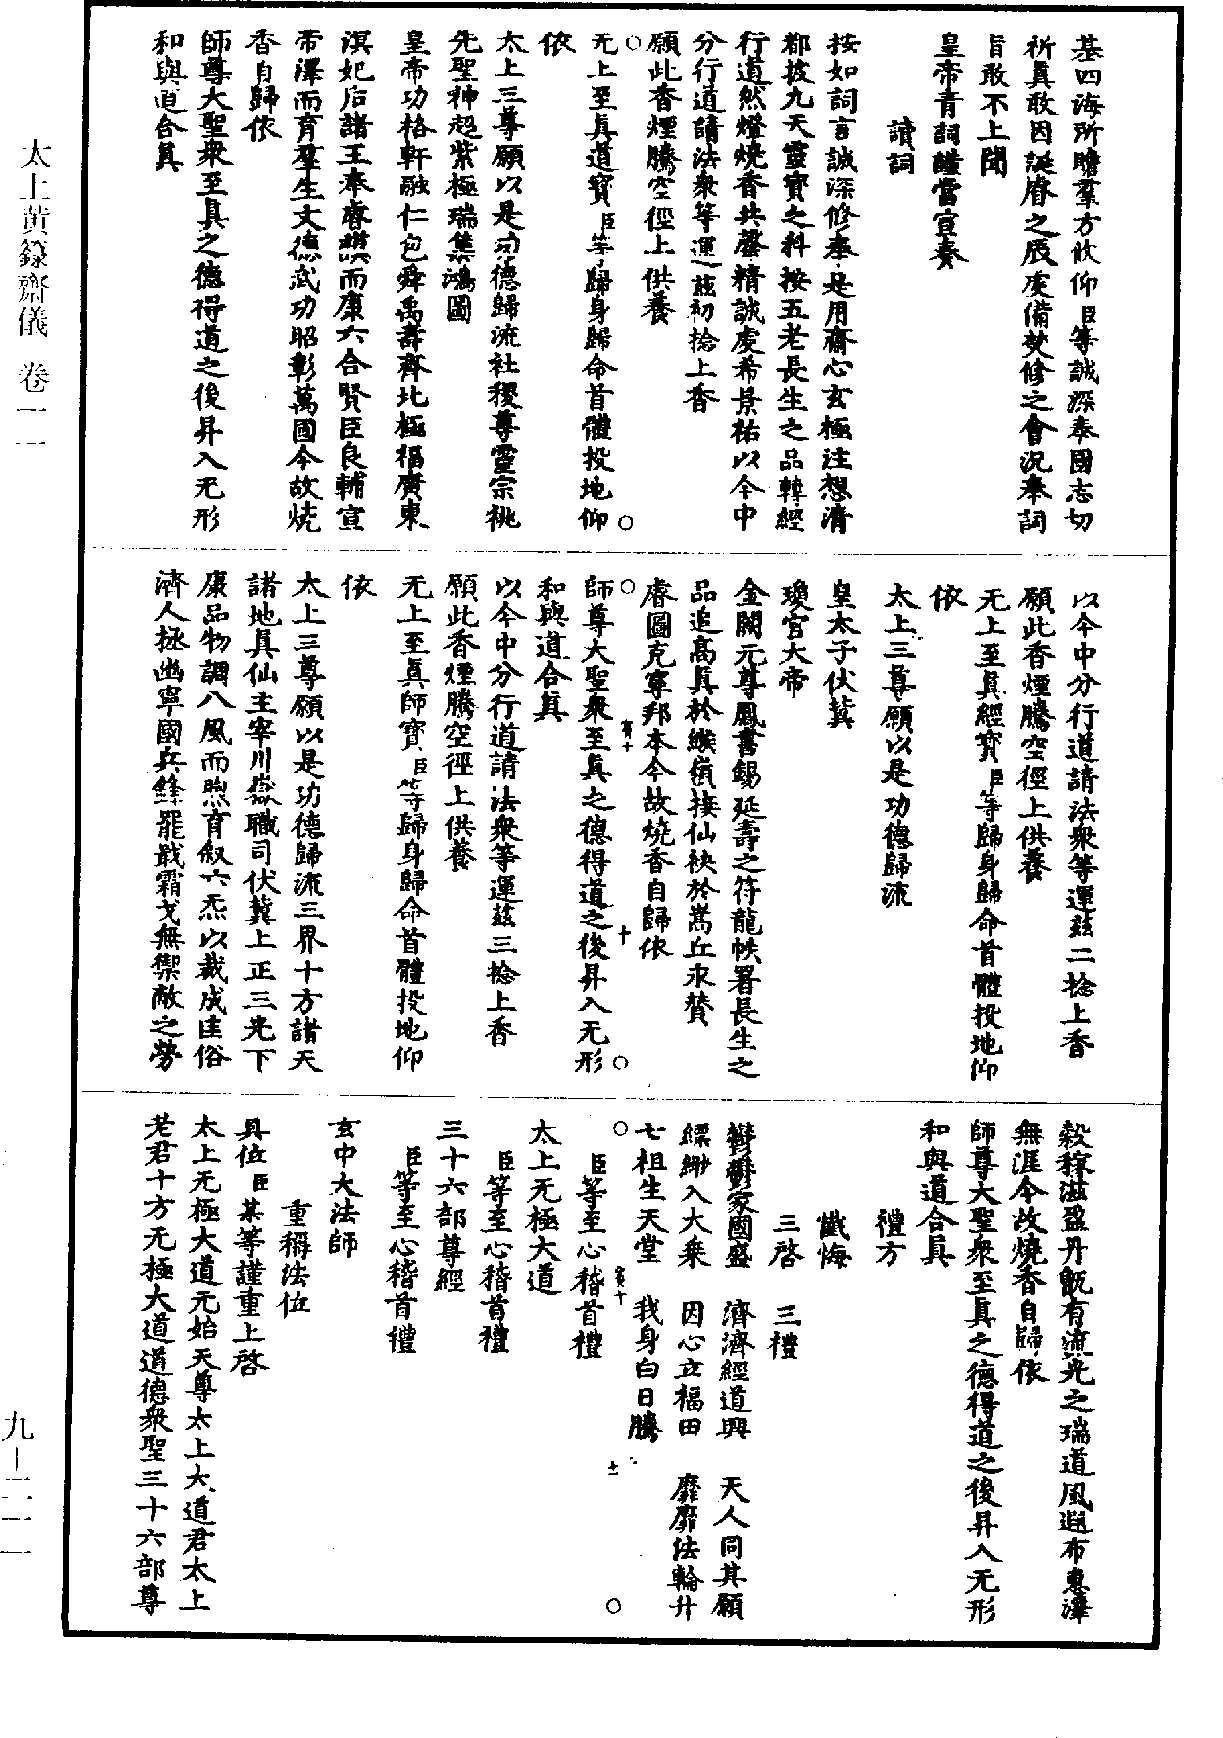 基四海所瞻羣方攸仰臣等誠深奉國志切
祈真敢因誕慶之辰虔備焚修之會況奉詞
旨敢不上聞
皇帝青詞謹當宣奏
讀詞
按如詞言誠深修奉是用齋心玄極注想清
都披九天靈寶之科按五老長生之品轉經
行道然燈燒香共罄精誠虔希景祐以今中
分行道請法衆等運茲初捻上香
願此香煙騰空徑上供養
无上至真道寶臣等歸身歸命首體投地仰
依
太上三尊願以是功德歸流社稷尊靈宗祧
先聖神超紫極瑞集鴻圖
皇帝功格軒融仁包舜禹壽齊北極福廣東
溟妃后諸王奉睿謨而康六合賢臣良輔宣
帝澤而育羣生文德武功昭彰萬國今故燒
香自歸依
師尊大聖衆至真之德得道之後昇入无形
和與道合真
以今中分行道請法衆等運茲二捻上香
願此香煙騰空徑上供養
无上至真經寶臣等歸身歸命首體投地仰
依
太上三尊願以是功德歸流
皇太子伏冀
瓊宮大帝
金闕元尊鳳書錫延壽之符龍帙署長生之
品追高真於緱嶺接仙袂於嵩丘永贊
睿圖克寧邦本今故燒香自歸依
師尊大聖衆至真之德得道之後昇入无形
和與道合真
以今中分行道請法衆等運茲三捻上香
願此香煙騰空徑上供養
无上至真師寶臣等歸身歸命首體投地仰
依
太上三尊願以是功德歸流三界十方諸天
諸地真仙主宰川嶽職司伏冀上正三光下
康品物調八風而煦育叙六炁以裁成匡俗
濟人拯幽寧國兵鋒罷戢霜戈無禦敵之勞
穀稼滋盈丹甑有流光之瑞道風遐布惠澤
無涯今故燒香自歸依
師尊大聖衆至真之德得道之後昇入无形
和與道合真
禮方
懺悔
三啓 三禮
鬱鬱家國盛 濟濟經道興 天人同其願
縹緲入大乘 因心立福田 靡靡法輪升
七祖生天堂 我身白日騰
臣等至心稽首禮
太上无極大道
臣等至心稽首禮
三十六部尊經
臣等至心稽首禮
玄中大法師
重稱法位
具位臣某等謹重上啓
太上无極大道元始天尊太上大道君太上
老君十方无極大道道德衆聖三十六部尊
太上黃籙齋儀 卷一一
九—二一一